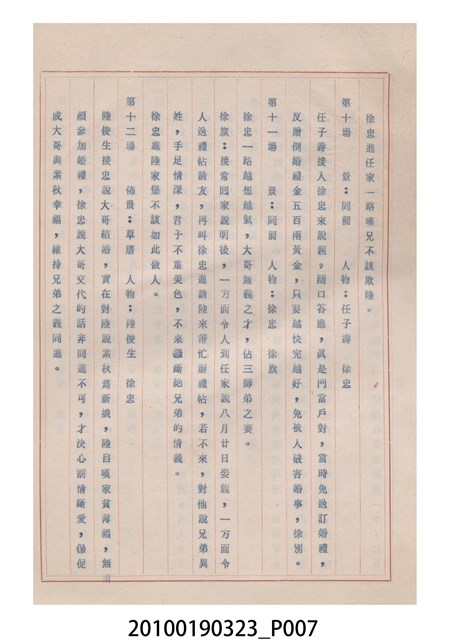 徐忠進任家一路嘆兄不該欺陸。
第十場　景：同前　人物：任子壽　徐忠
任子壽接入徐忠來說親，隨口答應，眞是門當戶對，當時免送訂婚禮，
反贈倒婚禮金五百兩黃金，只要越快完越好，免被人破害婚事，徐別。
第十一場　景：同前　人物：徐忠　徐旗
徐忠一路越想越氣，大哥無義之才，佔三師弟之妻。
徐旗：後常囘家說明後，一方面令人到任家說八月廿日娶親，一方面令
人送禮帖請友，再叫徐忠進請陸來帮忙辦禮帖，若不來，對他說兄弟異
姓，手足情深，君子不重美色，不來斷絕兄弟的情義。
徐忠進陸家堡不該如此做人。
第十二場　佈景：草厝　人物：陸俊生　徐忠
陸俊生接忠說大哥結婚，實在對陸說素秋為新娘，陸自嘆家貧薄福，無
顏參加婚禮，徐忠說大哥交代的話非同進不可，才決心割情斷愛，促
成大哥與素秋幸福，維持兄弟之義同進。
20100190323_P007